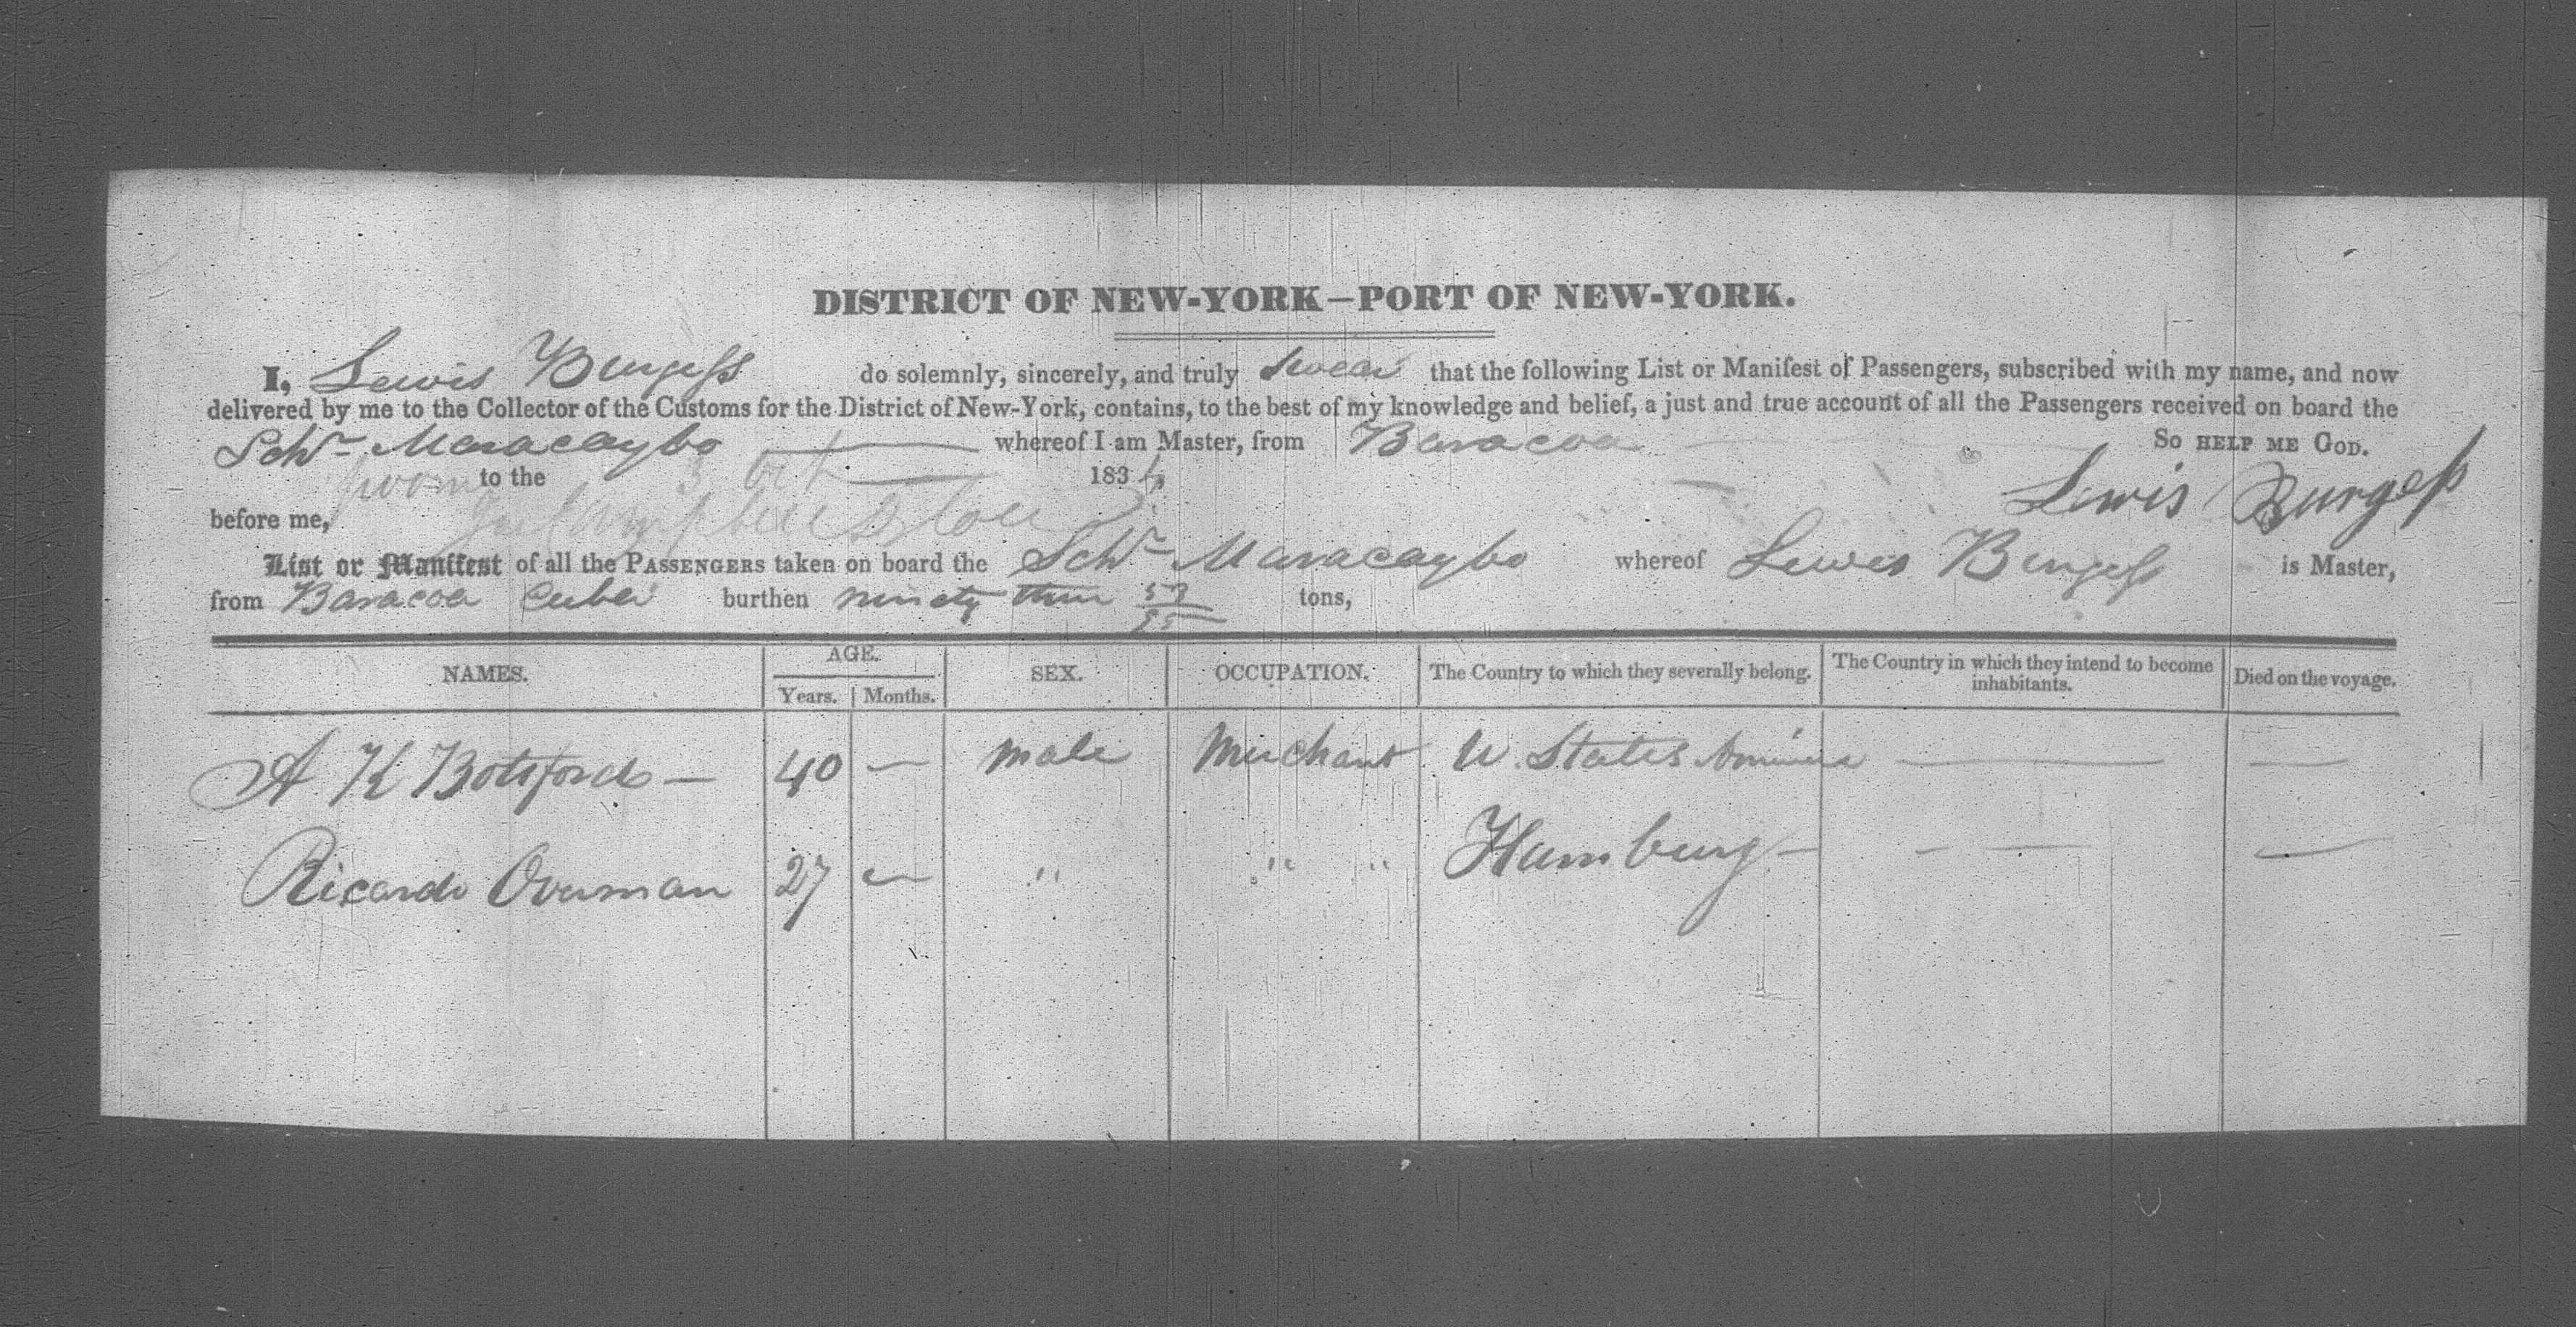 DISTRICT OF NEW-YORK—PORT OF NEW-YORK.
I, Lewis Burgess do solemnly, sincerely, and truly swear that the following List or Manifest of Passengers, subscribed with my name, and now
delivered by me to the Collector of the Customs for the District of New-York, contains, to the best of my knowledge and belief, a just and true account of all the Passengers received on board the
Schr Maracaybo whereof I am Master, from Baracoa So HELP ME GOD.
Sworn to the 3 Oct 183
Lewis Burgess
before me,
List or Manifest of all the PASSENGERS taken on board the Schr Maracaybo whereof Lewis Burgess is Master,
from Baracoa Cuba burthen ninety three 53/95 tons,
NAMES. AGE. SEX. OCCUPATION. The Country to which they severally belong. The Country in which they intend to become inhabitants. Died on the voyage.
Years. Months.
A K Botsford — 40 — male Merchant U. States America — —
Ricardo Overman 27 — " " " Hamburg — — —